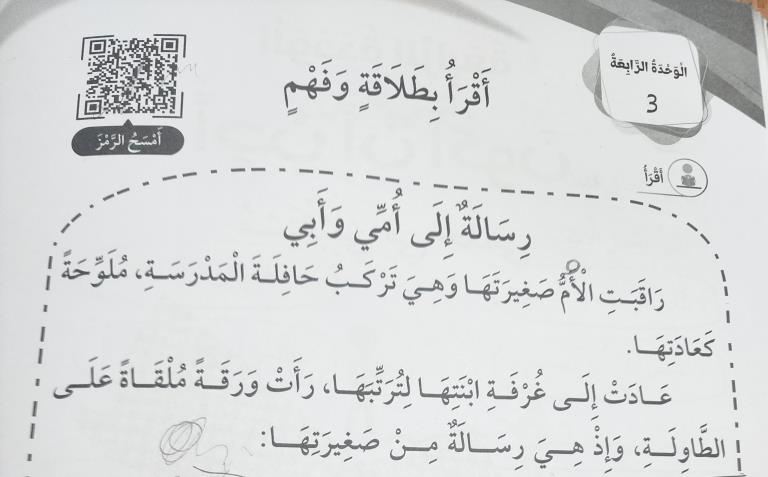 الْوَحْدَةُ الرَّابِعَةُ
3
أَقْرَأُ بِطَلَاقَةٍ وَفَهْمٍ
أَمْسَحُ الرَّمْزَ
أَقْرَأُ
رِسَالَةٌ إِلَى أُمِّي وَأَبِي
رَاقَبَتِ الْأُمُّ صَغِيرَتَهَا وَهِيَ تَرْكَبُ حَافِلَةَ الْمَدْرَسَةِ، مُلَوِّحَةً
كَعَادَتِهَا.
عَادَتْ إِلَى غُرْفَةِ ابْنَتِهَا لِتُرَتِّبَهَا، رَأَتْ وَرَقَةً مُلْقَاةً عَلَى
الطَّاوِلَةِ، وَإِذْ هِيَ رِسَالَةٌ مِنْ صَغِيرَتِهَا: